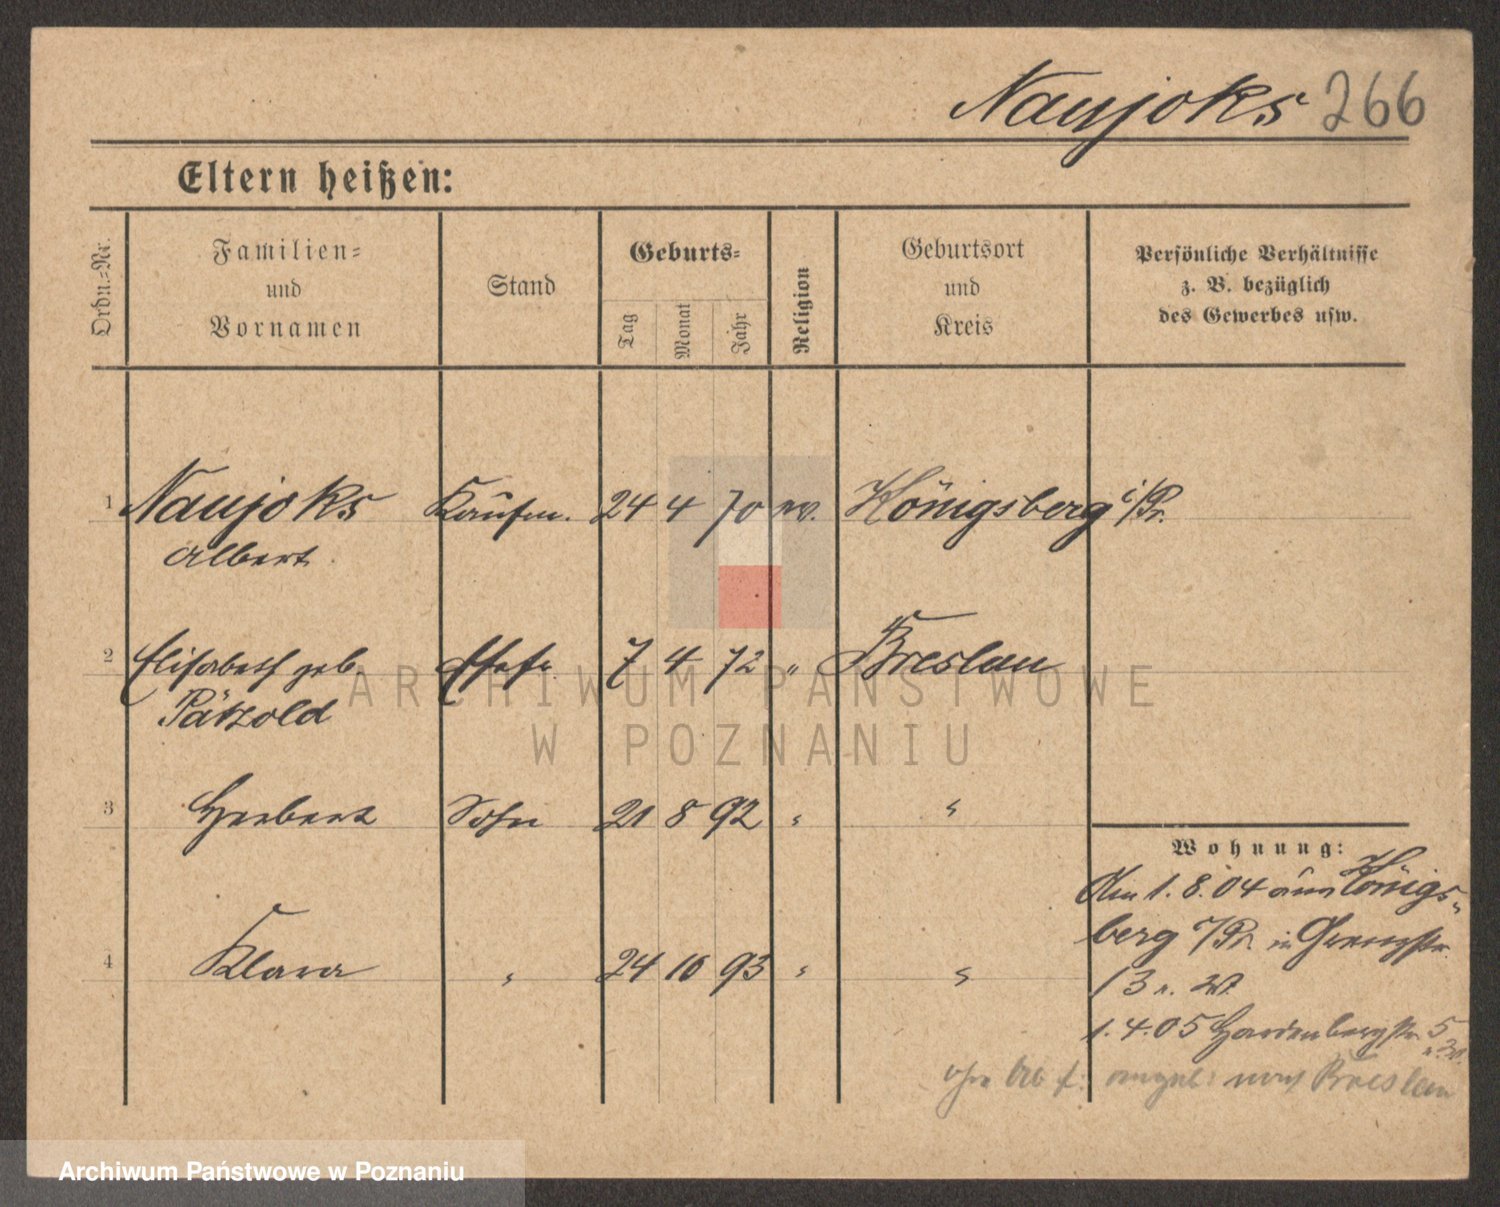 Naujoks 266
Eltern heißen:
Ordn.=Nr.
Familien=
und
Vornamen
Stand
Geburts=
Tag
Monat
Jahr
Religion
Geburtsort
und
Kreis
Persönliche Verhältnisse
z. B. bezüglich
des Gewerbes usw.
1 Naujoks Kaufm. 24 4 70 ev. Königsberg i/Pr.
Albert
2 Elisabeth geb. Ehefr. 7 4 72 " Breslau
Pätzold
3 Herbert Sohn 21 8 92 " "
4 Klara " 24 10 93 " "
Wohnung:
Am 1.8.04 aus Königs-
berg i/Pr. in
13
1.4.05 Hardenbergstr. 5
angebl. nach Breslau
ARCHIWUM PAŃSTWOWE
W POZNANIU
Archiwum Państwowe w Poznaniu